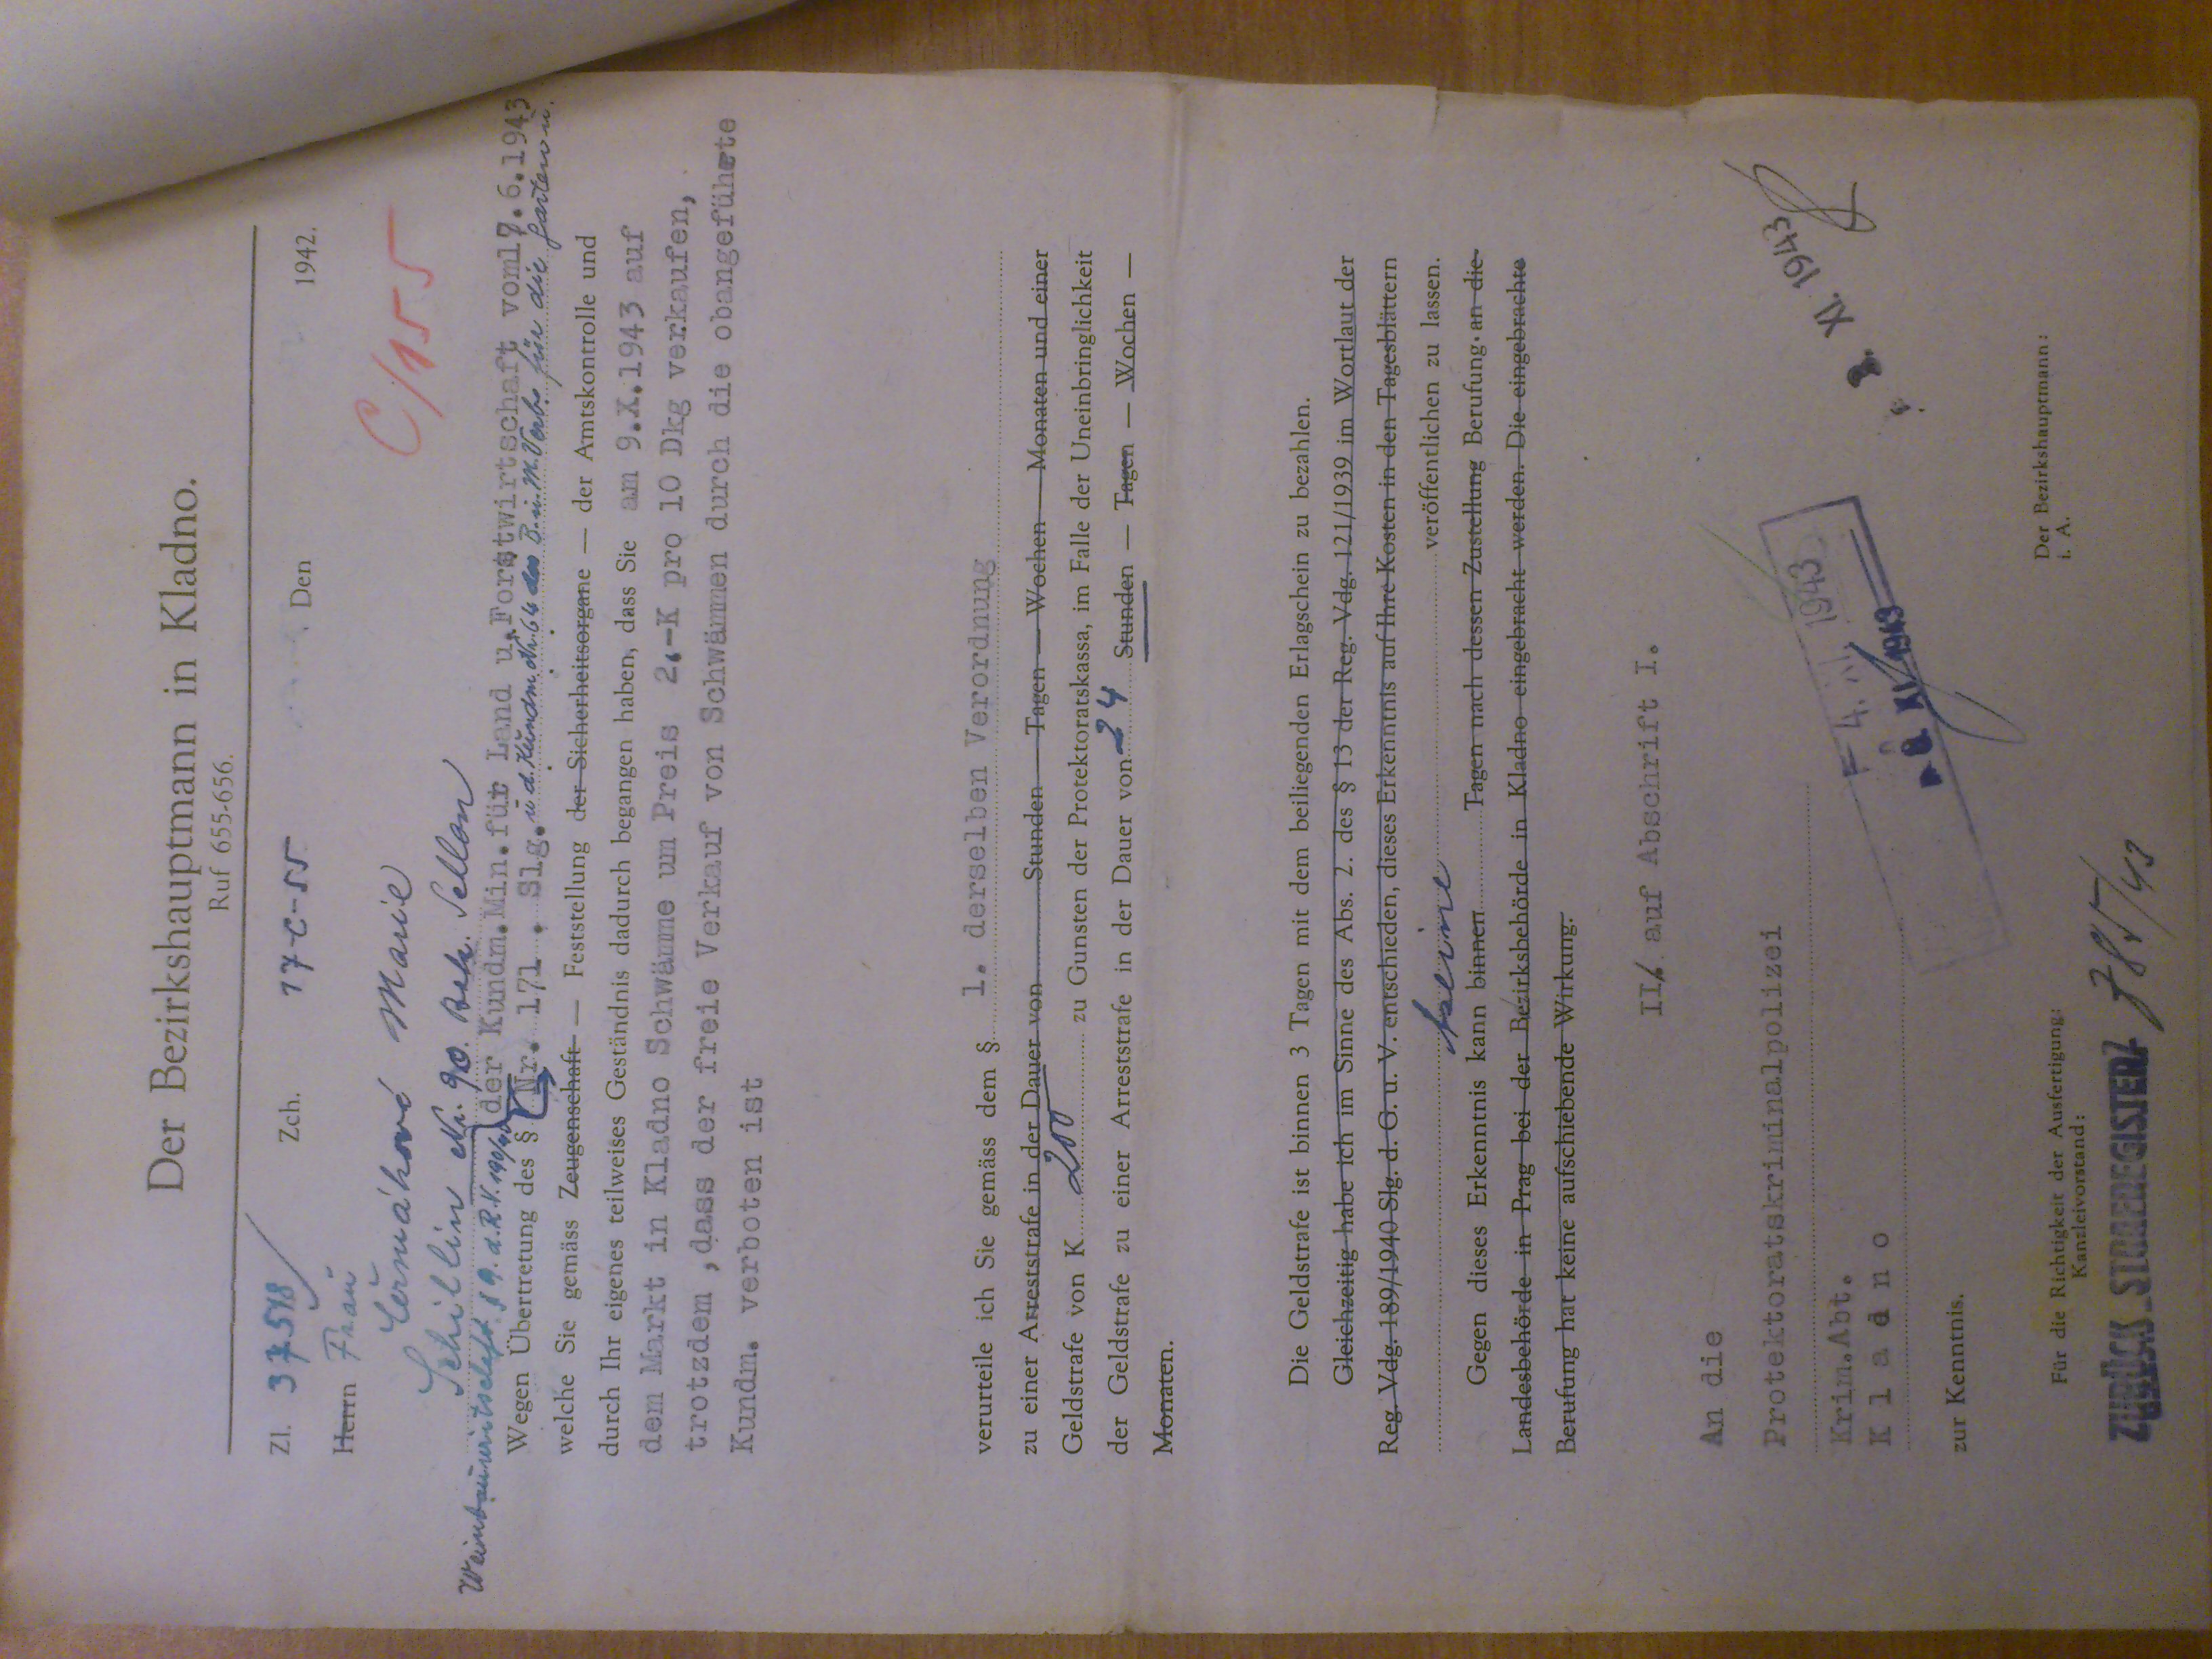 Der Bezirkshauptmann in Kladno.
Ruf 655-656.
Zl. 37518/ Zch. 17-C-55 Den 1942.
Herrn Frau
Čermáková Marie
C/155
Schillin Nr. 90. Bek. Schlan
Weinbauwirtschaft § 9. d. R.V. 190/40 der Kundm.Min.für Land u.Forstwirtschaft vom17.6.1943
Wegen Übertretung des § Nr. 171 . Slg. u d. Kundm. Nr. 64 des B. u. M. Verb. für die Garten u.
welche Sie gemäss Zeugenschaft — Feststellung der Sicherheitsorgane — der Amtskontrolle und
durch Ihr eigenes teilweises Geständnis dadurch begangen haben, dass Sie am 9.X.1943 auf
dem Markt in Kladno Schwämme um Preis 2.-K pro 10 Dkg verkaufen,
trotzdem ,dass der freie Verkauf von Schwämmen durch die obangeführte
Kundm. verboten ist
verurteile ich Sie gemäss dem § 1. derselben Verordnung
zu einer Arreststrafe in der Dauer von Stunden — Tagen — Wochen — Monaten und einer
Geldstrafe von K 200 zu Gunsten der Protektoratskassa, im Falle der Uneinbringlichkeit
der Geldstrafe zu einer Arreststrafe in der Dauer von 24 Stunden — Tagen — Wochen —
Monaten.
Die Geldstrafe ist binnen 3 Tagen mit dem beiliegenden Erlagschein zu bezahlen.
Gleichzeitig habe ich im Sinne des Abs. 2. des § 13 der Reg. Vdg. 121/1939 im Wortlaut der
Reg. Vdg. 189/1940 Slg. d. G. u. V. entschieden, dieses Erkenntnis auf Ihre Kosten in den Tagesblättern
veröffentlichen zu lassen.
keine
Gegen dieses Erkenntnis kann binnen Tagen nach dessen Zustellung Berufung. an die
Landesbehörde in Prag bei der Bezirksbehörde in Kladno eingebracht werden. Die eingebrachte
Berufung hat keine aufschiebende Wirkung.
II. auf Abschrift I.
An die
Protektoratskriminalpolizei
Krim.Abt.
Kladno
4. XI. 1943
8. XI. 1943
XI. 1943
zur Kenntnis.
Für die Richtigkeit der Ausfertigung:
Kanzleivorstand:
Der Bezirkshauptmann:
i. A.
ZURÜCK STRAFREGISTER 785/43